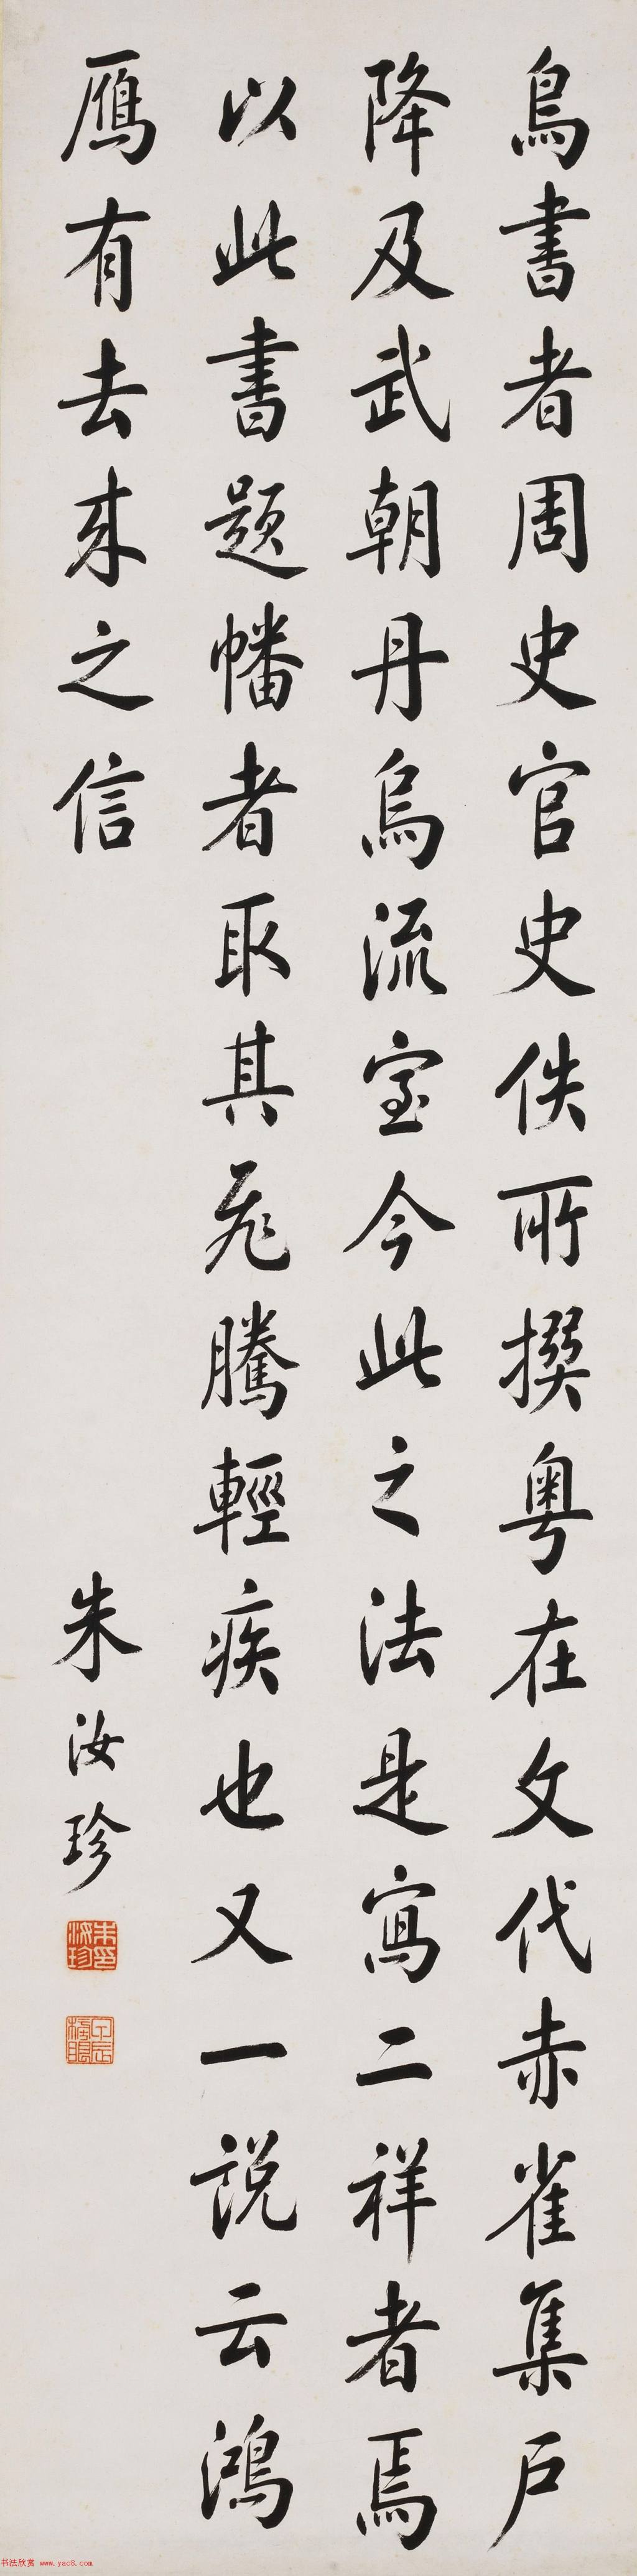 鳥書者周史官史佚所撰粵在文代赤雀集戶
降及武朝丹烏流室今此之法是寫二祥者焉
以此書題幡者取其飛騰輕疾也又一說云鴻
鴈有去來之信
朱汝珍
朱印汝珍
甲辰榜眼
书法欣赏 www.yac8.com